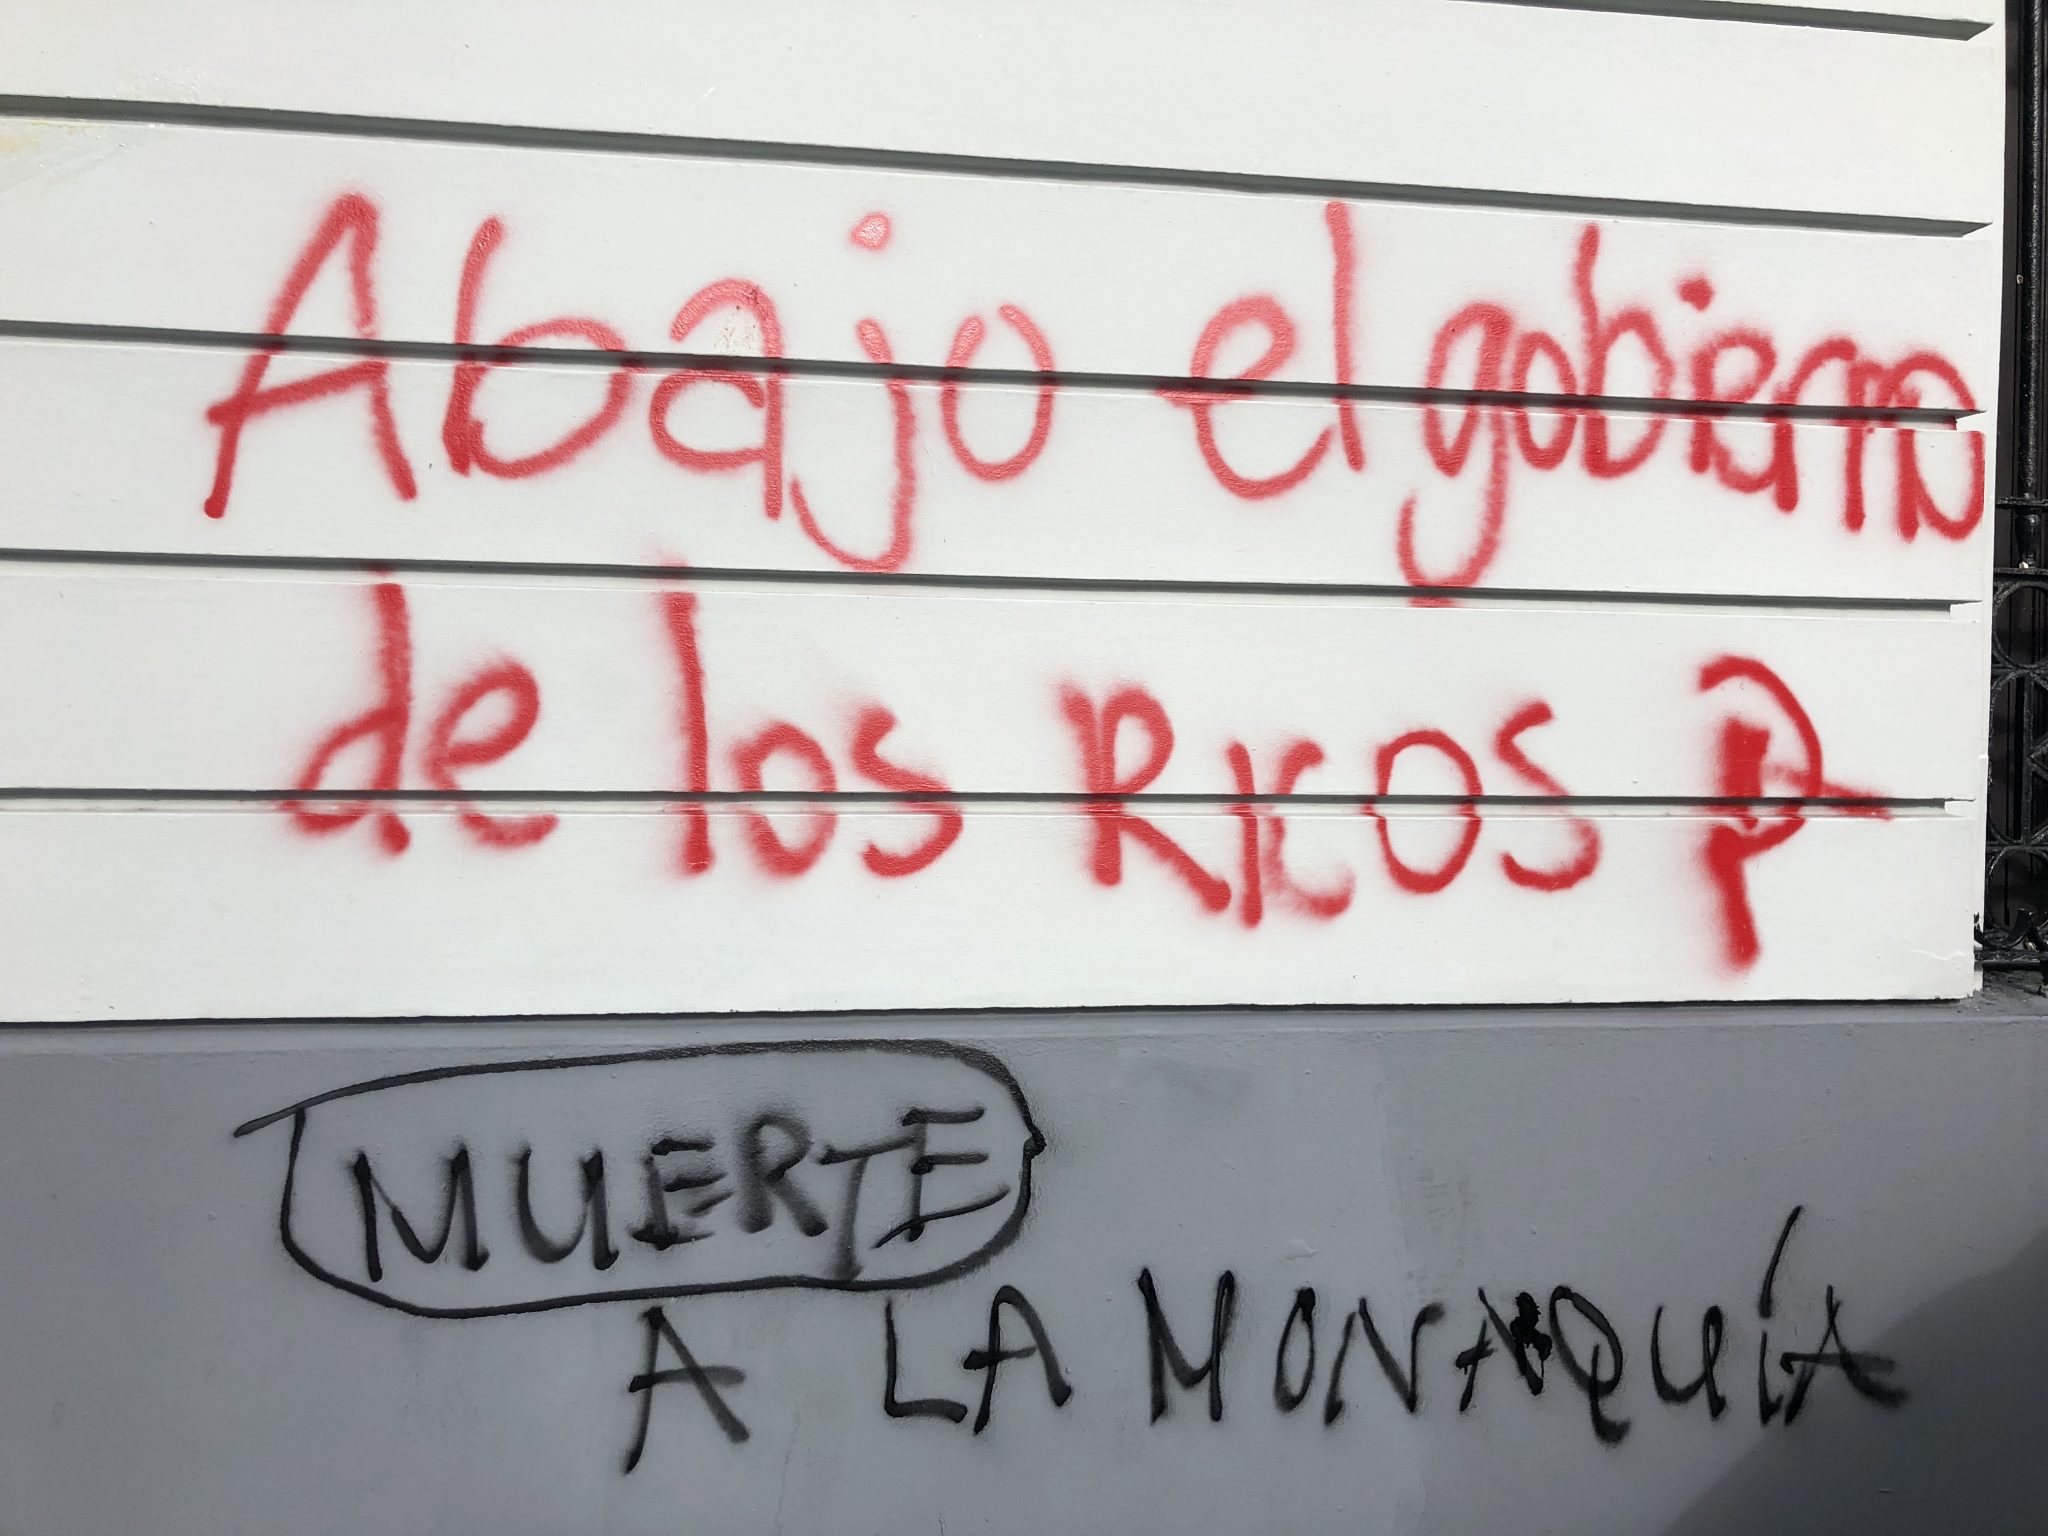 Abajo el gobierno
de los RICOS
MUERTE
A LA MONARQUÍA